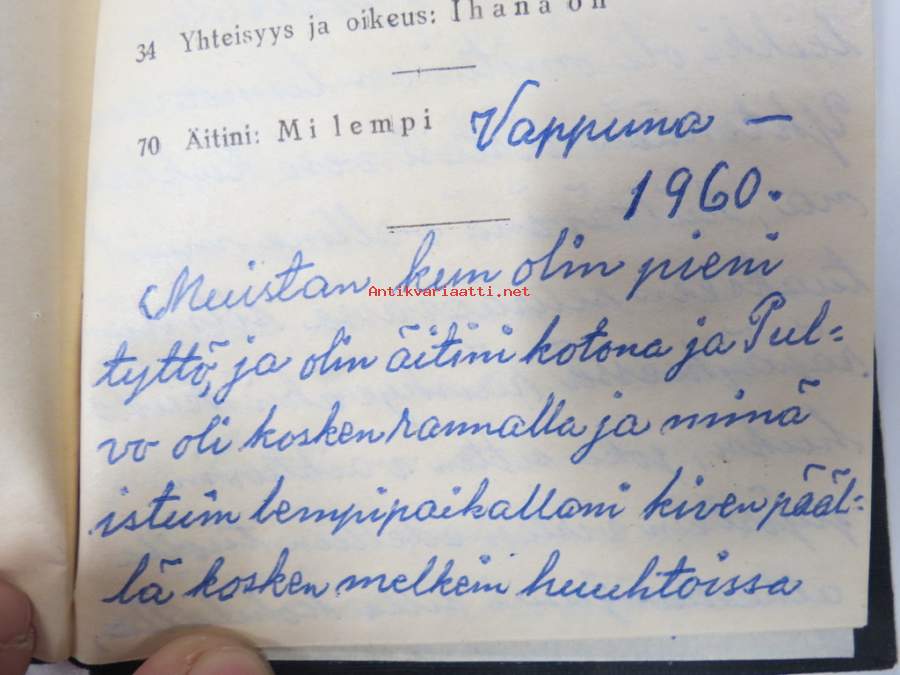 34 Yhteisyys ja oikeus: Ihana on
70 Äitini: Mi lempi
Vappuna —
1960.
Muistan kun olin pieni
Antikvariaatti.net
tyttö, ja olin äitini kotona ja Pul=
vo oli kosken rannalla ja minä
istuin lempipaikallani kiven pääl=
lä kosken melkein huuhtoissa